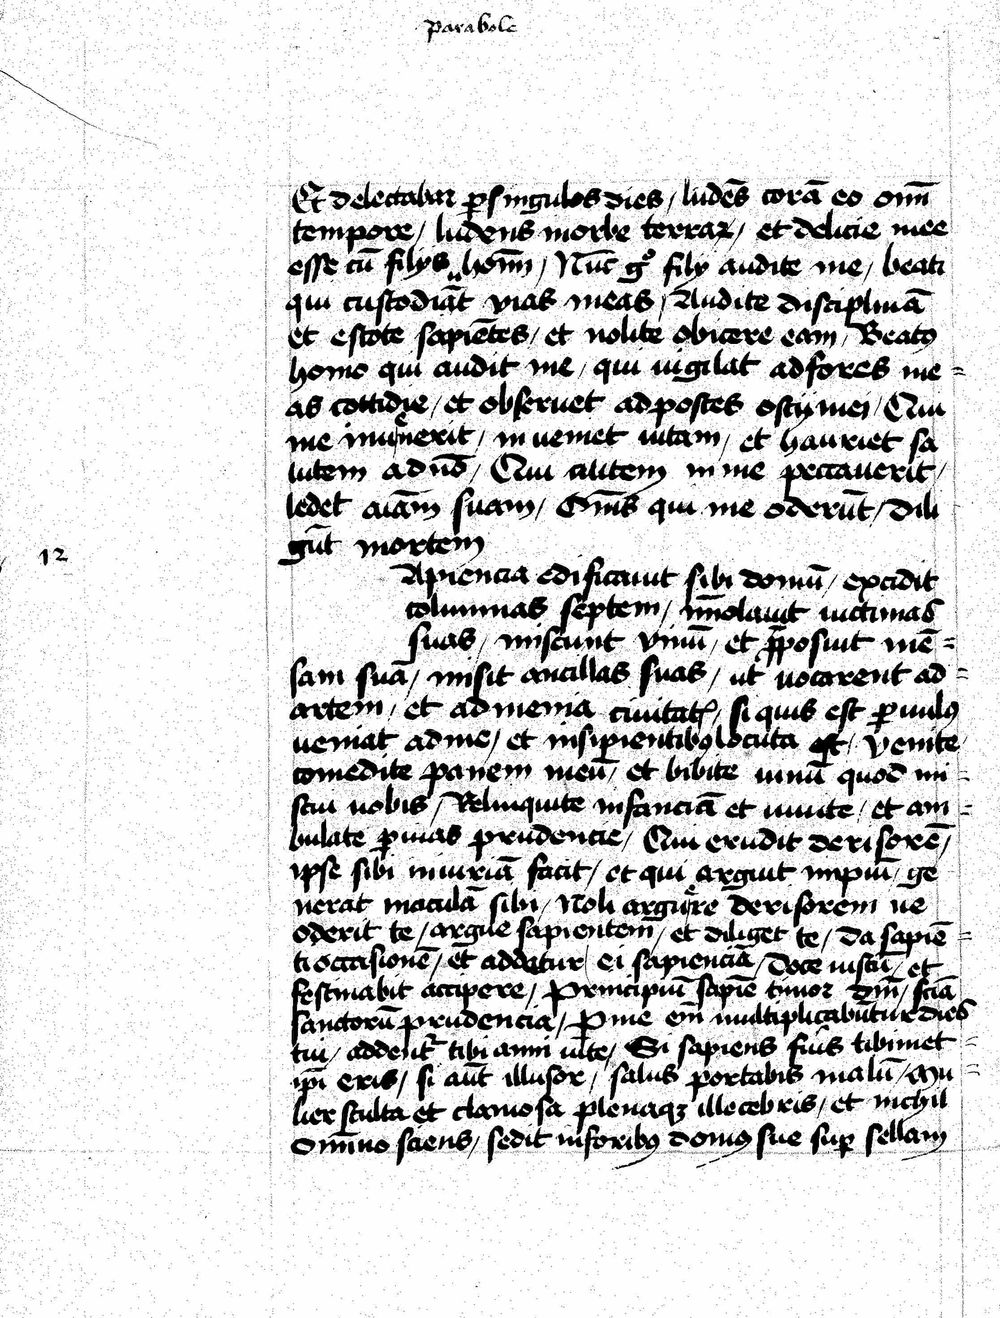 Parabole
Et delectabar ꝑ singulos dies / ludēs corā eo om̄i
tempore / ludens in orbe terraꝝ / et delicie mee
esse cū filijs hom̄i / Nūc gͦ filij audite me / beati
qui custodiāt vias meas / Audite disciplinā
et estote sapiētes / et nolite abicere eam / Beatꝰ
homo qui audit me / qui vigilat ad fores me =
as cottidie / et obseruet ad postes ostij mei / Qui
me inuenerit / inueniet uitam / et hauriet sa
lutem a dn̄o / Qui autem in me peccauerit /
ledet aīam suam / Om̄s qui me oderūt / dili
gūt mortem
12
Apiencia edificauit sibi domū / excidit
columnas septem / īmolauit uictimas
suas / miscuit vinū / et ꝓposuit mē =
sam suā / misit ancillas suas / ut uocarent ad =
artem / et ad menia ciuitatꝭ / si quis est ꝑuulꝰ
ueniat ad me / et insipientibꝰ locuta est / Venite /
comedite panem meū / et bibite uinū quod mi =
scui uobis / Relinquite infanciā et uiuite / et am =
bulate ꝑ uias prudencie / Qui erudit derisorē /
ipse sibi iniuriā facit / et qui arguit impiū / ge
nerat maculā sibi / Noli arguere derisorem ne
oderit te / argue sapientem / et diliget te / Da sapiē =
ti occasionē / et addetur ei sapiencia / Doce iustū / et
festinabit accipere / Principiū sapiē timor dn̄i / sciā
sanctorū prudencia / Per me em̄ multiplicabūtur dies
tui / addent᷑ tibi anni uite / Si sapiens fūs tibimet =
ip̄i eris / si aūt illusor / solus portabis malū / Mu =
lier stulta et clamosa plenaqꝫ illecebris / et nichil
omīno sciens / sedit in foribꝰ domꝰ sue suꝑ sellam